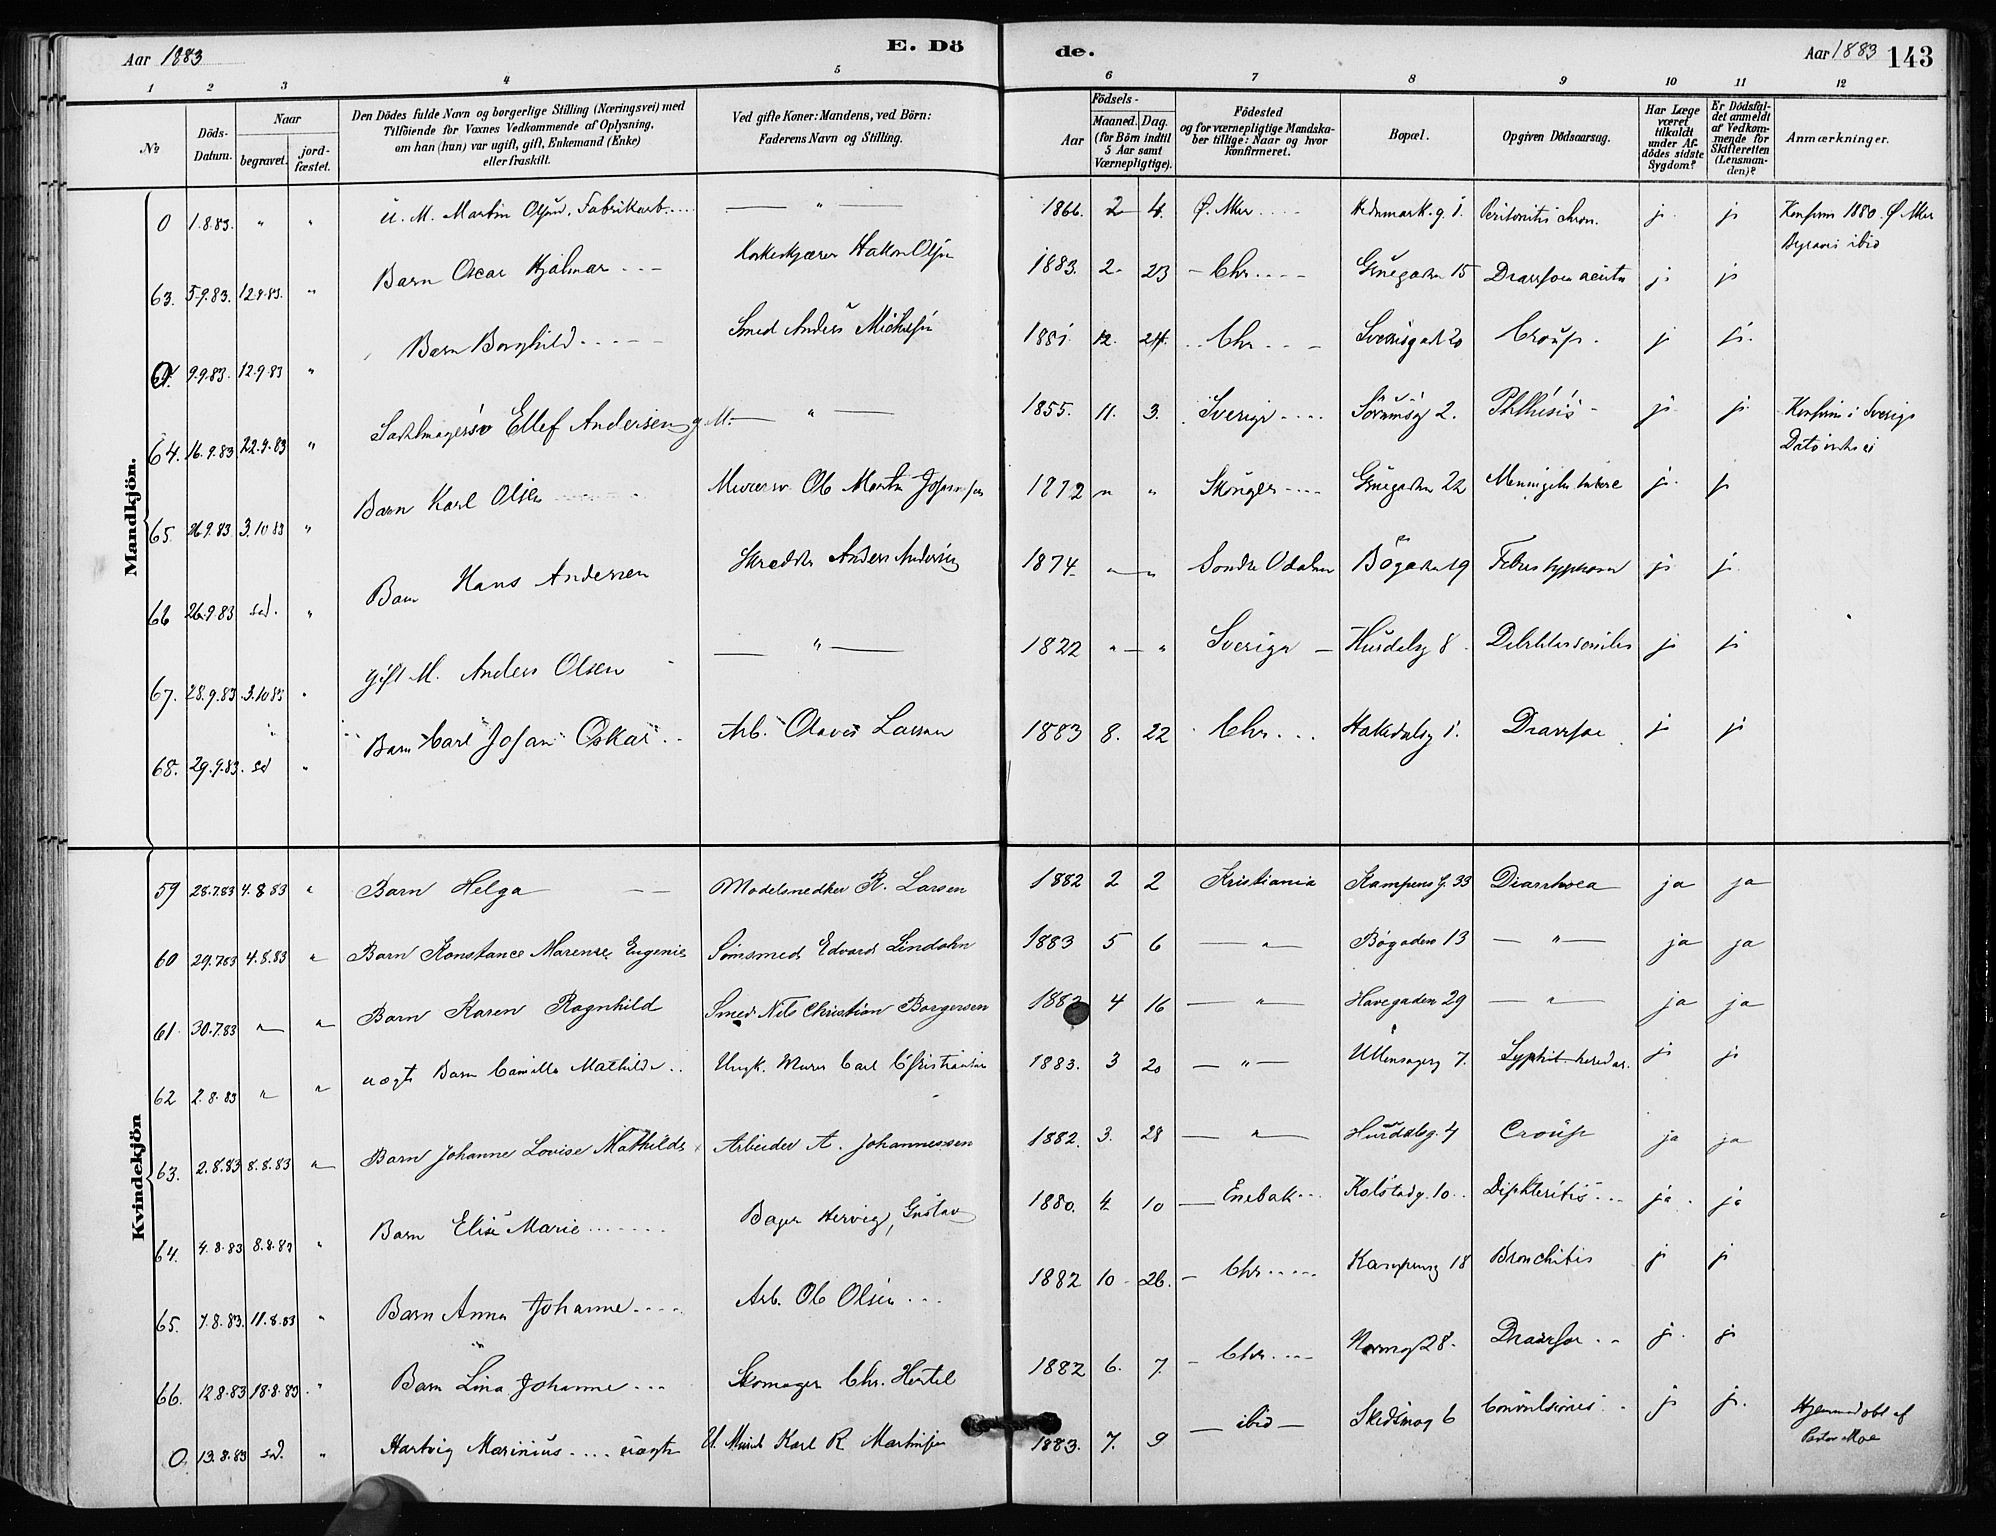 Aar 1883 E. Dö de. Aar 1883 143
1 2 3 4 5 6 7 8 9 10 11 12
No
Döds-Datum.
Naar
begravet.
jordfæstet.
Den Dödes fulde Navn og borgerlige Stilling (Næringsvei) med
Tilföiende for Voxnes Vedkommende af Oplysning,
om han (hun) var ugift, gift, Enkemand (Enke)
eller fraskilt.
Ved gifte Koner: Mandens, ved Börn:
Faderens Navn og Stilling.
Födsels-
Aar
Maaned. Dag.
(for Börn indtil
5 Aar samt
Værnepligtige).
Födested
og for værnepligtige Mandska-
ber tillige: Naar og hvor
konfirmeret.
Bopæl.
Opgiven Dödsaarsag.
Har Læge
været
tilkaldt
under Af-
dödes sidste
Sygdom?
Er Dödsfal-
det anmeldt
af Vedkom-
mende for
Skifteretten
(Lensman-
den)?
Anmærkninger.
Mandkjön.
0 1.8.83. " " u. M. Martin Olsen, Fabrikarb. — " — 1866. 2 4. Ø. Aker Hedemark.g. 1. Peritonitis chron. ja ja Konfirm 1880. Ø Aker
Begravet ibid
63. 5.9.83. 12.9.83. " Barn Oscar Hjalmar Hakon Olsen 1883. 2 23 Chr. Gruegaden 15 Diarrhoea acuta ja ja
9.9.83. 12.9.83 " Barn Borghild Smed Anders 1881. 12. 24. Chr. 20 Croup. ja ja
64. 16.9.83 22.9.83 " Sadelmagersv Ellef Andersen g. M. — " — 1855. 11. 3. Sverige Sörumsg 2. Phthisis ja ja Konfirm i Sverige
65. 26.9.83 3.10 83 " Barn Karl Olsen Murersv. Ole Martin Johansen 1872 " " Gruegaden 22 ja ja
66 26.9.83 sd. " Barn Hans Andersen Skrædder Anders Andersen 1874 " " Söndre Odalen Bögaden 19 ja ja
67. 28.9.83 3.10 83 " gift M. Anders Olsen — " — 1822 " " Sverige Hurdalsg 8 ja ja
68. 29.9.83. sd " Barn Carl Johan Oskar Arb. Olaves Larsen 1883 8. 22 Chr. Hakedalsg 1. Diarrhoe ja ja
Kvindekjön
59 28.7.83 4.8 83 " Barn Helga Modelsnedker R. Larsen 1882 2 2 Kristiania Kampens g. 33 Diarrhoea ja ja
60 29.7.83 4.8.83 " Barn Konstance Marense Eugenie Sömsmed Edvard Lindahn 1883 5 6 — " — Bögaden 13 — " — ja ja
61 30.7.83 " " Barn Karen Ragnhild Smed Nils Christian Borgersen 1882 4 16 — " — Havegaden 29 — " — ja ja
62 2.8.83 " " uægte Barn Camilla Mathilde Ungk. Murer Carl Christiansen 1883. 3 20 — " — Ullensagerg 7. Syphil. heredar. ja ja
63. 2.8.83 8.8.83 " Barn Johanne Lovise Mathilde Arbeider A. Johannessen 1882. 3. 28 — " — Hurdalsg. 4 Croup ja ja
64. 4.8.83 8.8.83 " Barn Elise Marie Bager Hervig, Gustav 1880. 4 10 Enebak Kolstadg. 10 Diphteritis ja ja
65. 7.8.83. 11.8.83 " Barn Anna Johanne Arb. Ole Olsen 1882 10 26. Chr. Kampensg 18 Bronchitis ja ja
66. 12.8.83 18.8.83 " Barn Lina Johanne Skomager Chr. Hertel 1882 6. 7. Chr. 28. Diarrhoe ja ja
0. 13.8.83 sd. " Hartvig Marinius uægte Karl R Martinsen 1883. 7. 9 — ibid — Skedsmog 6 Convulsiones ja ja Hjemmedöbt af
Pastor Moe